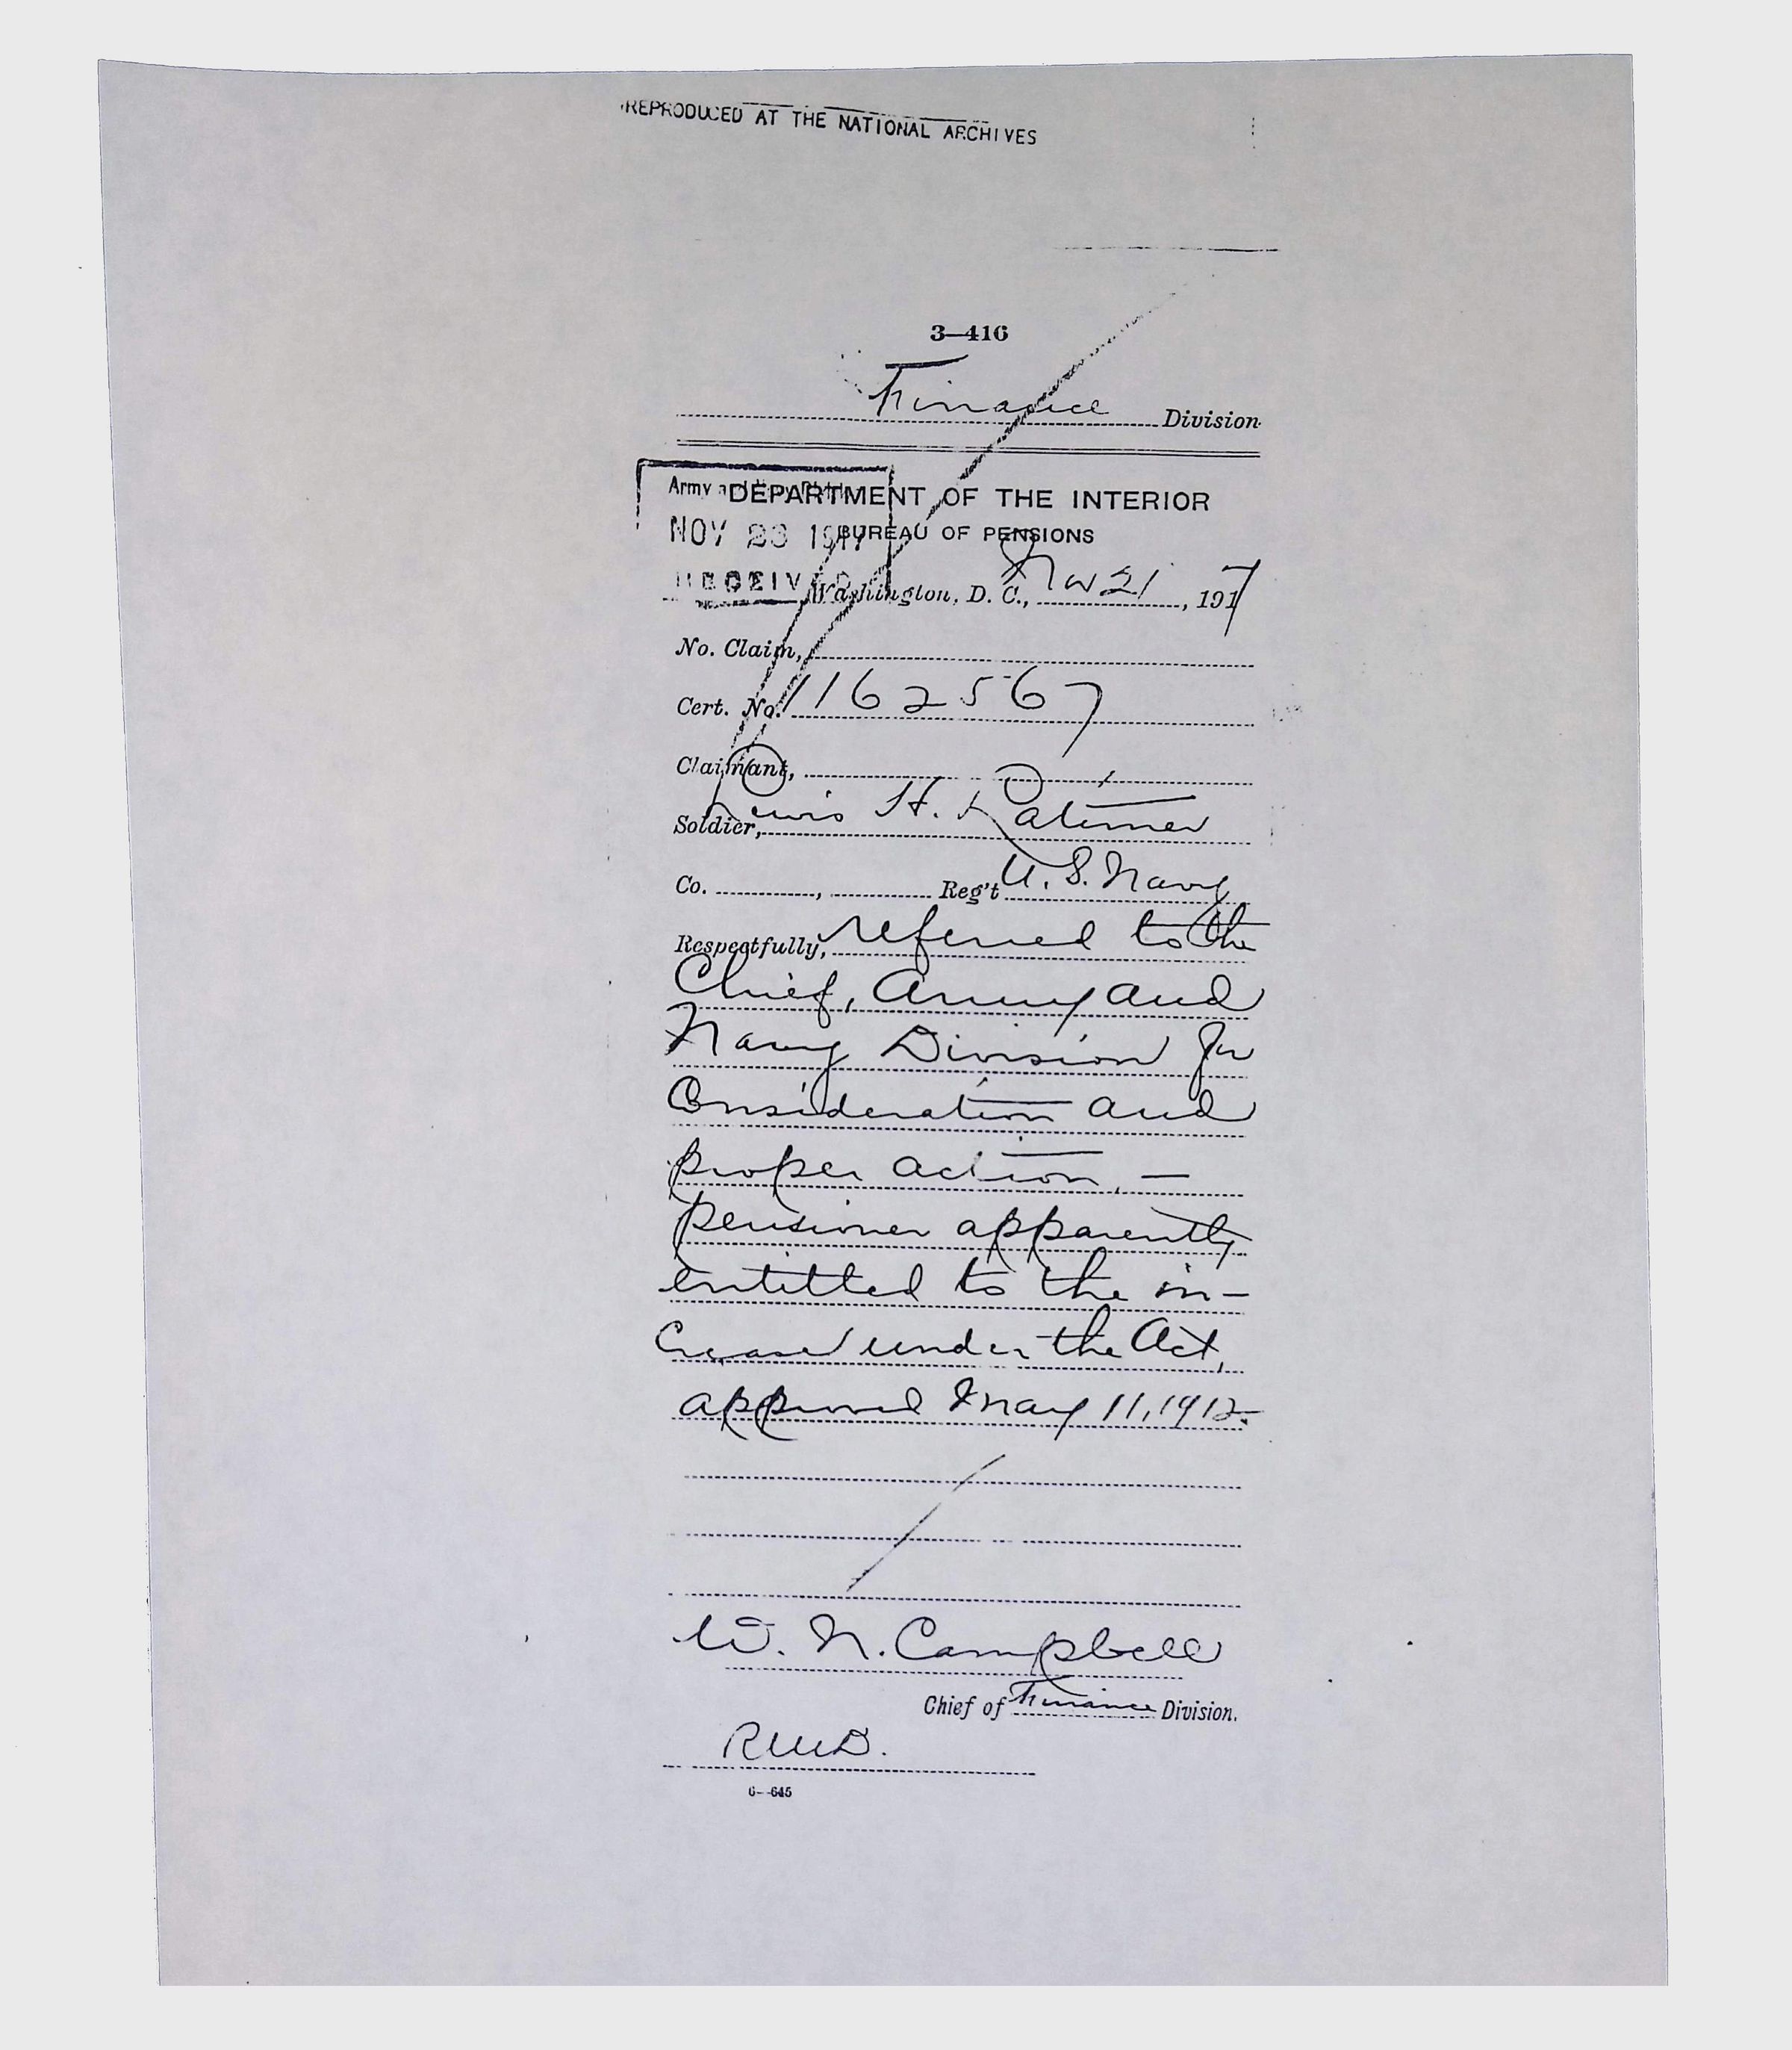 REPRODUCED AT THE NATIONAL ARCHIVES
3—416
Finance Division
DEPARTMENT OF THE INTERIOR
Army
NOV 23 1917
BUREAU OF PENSIONS
RECEIVED
Washington, D. C., Nov 21, 1917
No. Claim,
Cert. No. 1162567
Claimant,
Soldier, Lewis H. Latimer
Co. , Reg't U. S. Navy
Respectfully, referred to the
Chief, Army and
Navy Division for
Consideration and
proper action, —
pensioner apparently
entitled to the in-
crease under the Act,
approved May 11, 1912.
W. N. Campbell
Chief of Finance Division.
6—645